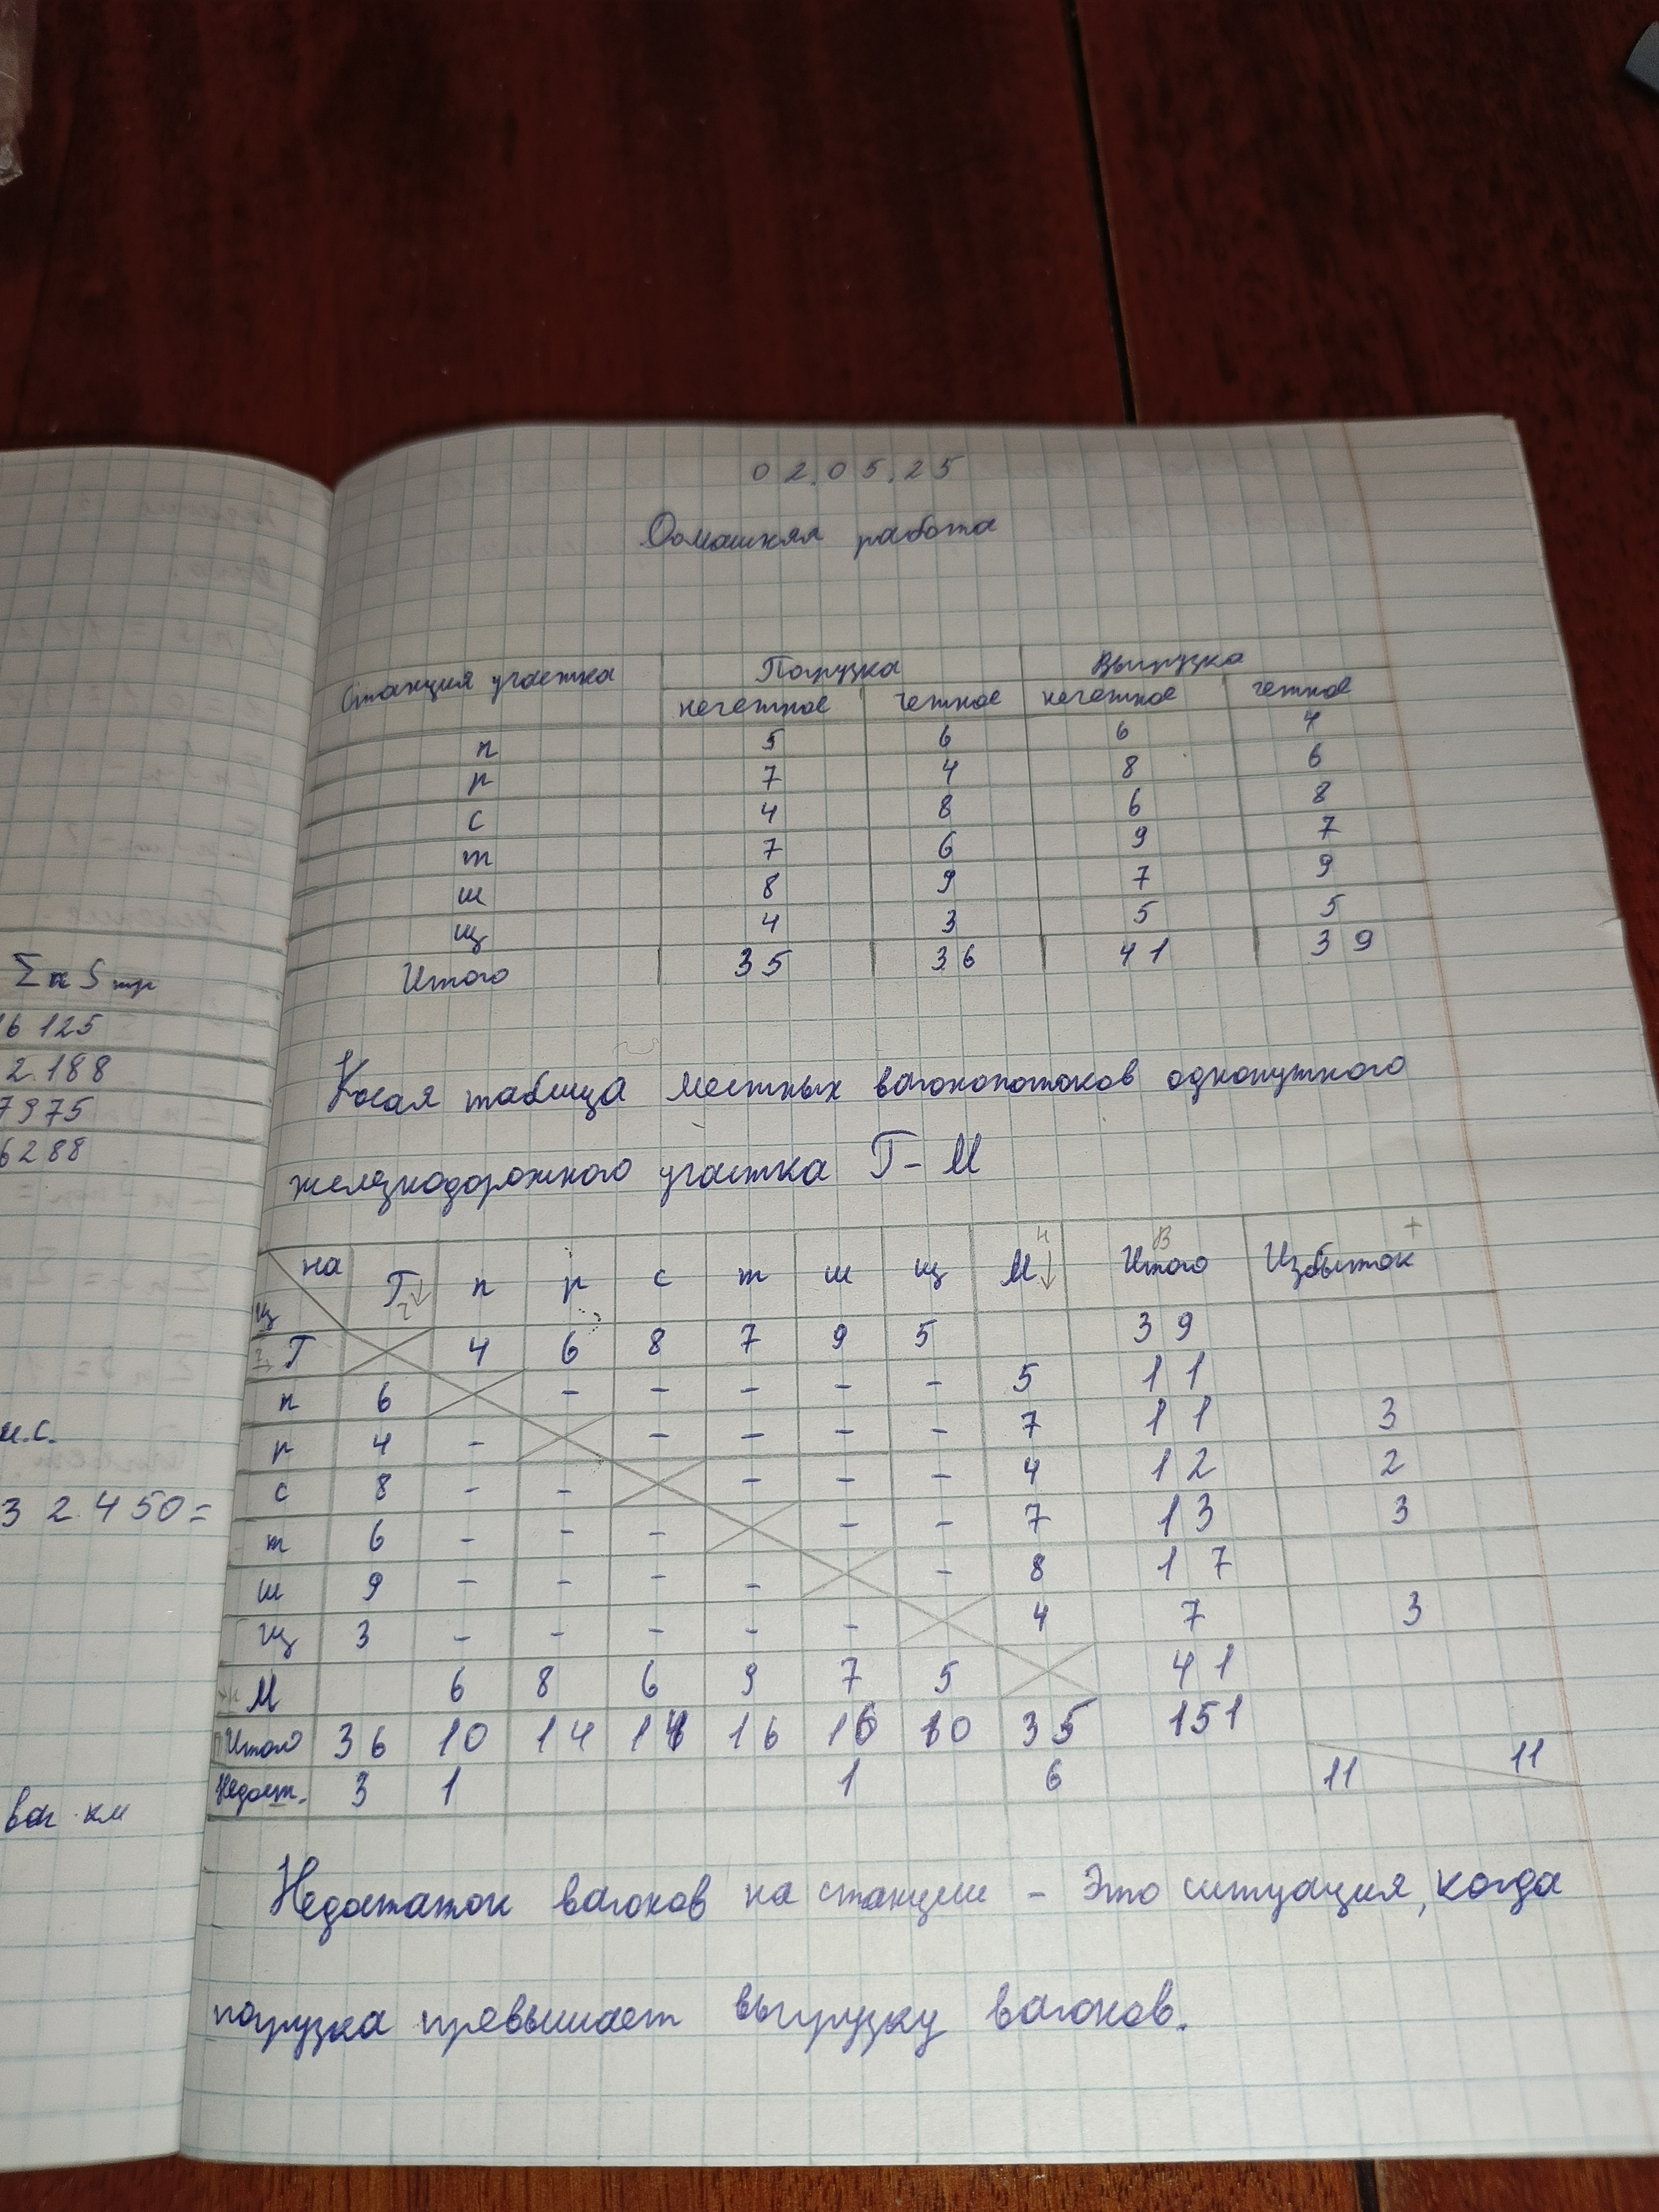 02.05.25
Домашняя работа
Станция участка Погрузка Выгрузка
нечетное четное нечетное четное
п 5 6 6 4
р 7 4 8 6
с 4 8 6 8
т 7 6 9 7
ш 8 9 7 9
щ 4 3 5 5
Итого 35 36 41 39
Косая таблица местных вагонопотоков однопутного
железнодорожного участка Г-М
на из Г п р с т ш щ М Итого Избыток +
Г 4 6 8 7 9 5 39
п 6 - - - - - 5 11
р 4 - - - - - 7 11 3
с 8 - - - - - 4 12 2
т 6 - - - - - 7 13 3
ш 9 - - - - - 8 17
щ 3 - - - - - 4 7 3
М 6 8 6 9 7 5 41
Итого 36 10 14 14 16 16 10 35 151
Недост. 3 1 1 6 11 11
Недостаток вагонов на станции - Это ситуация, когда
погрузка превышает выгрузку вагонов.
Σ n S тр
16 125
2.188
7975
6288
32.450=
ваг·км